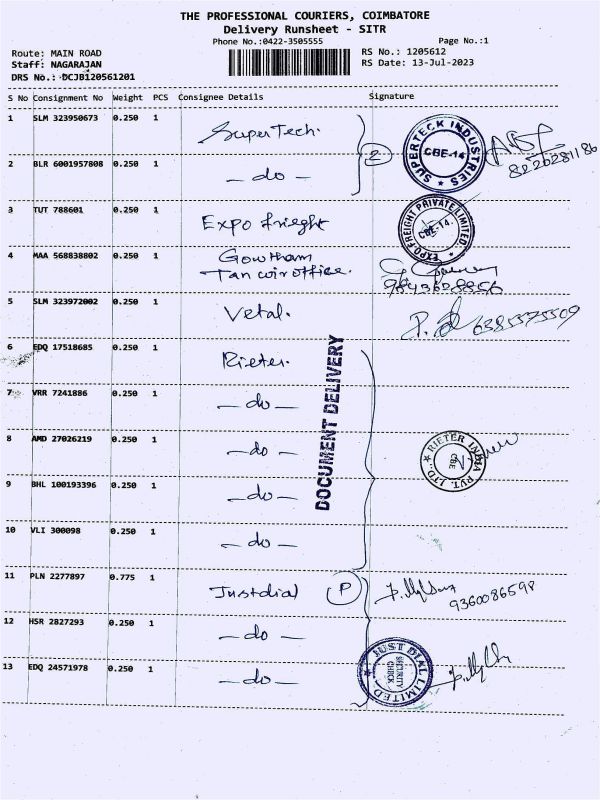 THE PROFESSIONAL COURIERS, COIMBATORE
Delivery Runsheet - SITR
Phone No.:0422-3505555
Page No.:1
Route: MAIN ROAD
RS No.: 1205612
Staff: NAGARAJAN
RS Date: 13-Jul-2023
DRS No.: DCJB120561201
S No Consignment No Weight PCS Consignee Details Signature
1 SLM 323950673 0.250 1 SuperTech.
SUPERTECK INDUSTRIES
CBE-14
2
2 BLR 6001957808 0.250 1 - do -
3 TUT 788601 0.250 1 Expo frieght
EXPO FREIGHT PRIVATE LIMITED
CBE-14.
4 MAA 568838802 0.250 1 Gowtham
5 SLM 323972002 0.250 1 Vetal.
6385375509
6 EDQ 17518685 0.250 1 Rieter.
DOCUMENT DELIVERY
7 VRR 7241886 0.250 1 - do -
8 AMD 27026219 0.250 1 - do -
RIETER INDIA PVT. LTD.
CBE
9 BHL 100193396 0.250 1 - do -
10 VLI 300098 0.250 1 - do -
11 PLN 2277897 0.775 1 Justdial P
9360086598
12 HSR 2827293 0.250 1 - do -
13 EDQ 24571978 0.250 1 - do -
JUST DIAL LIMITED
SECURITY
CHECK